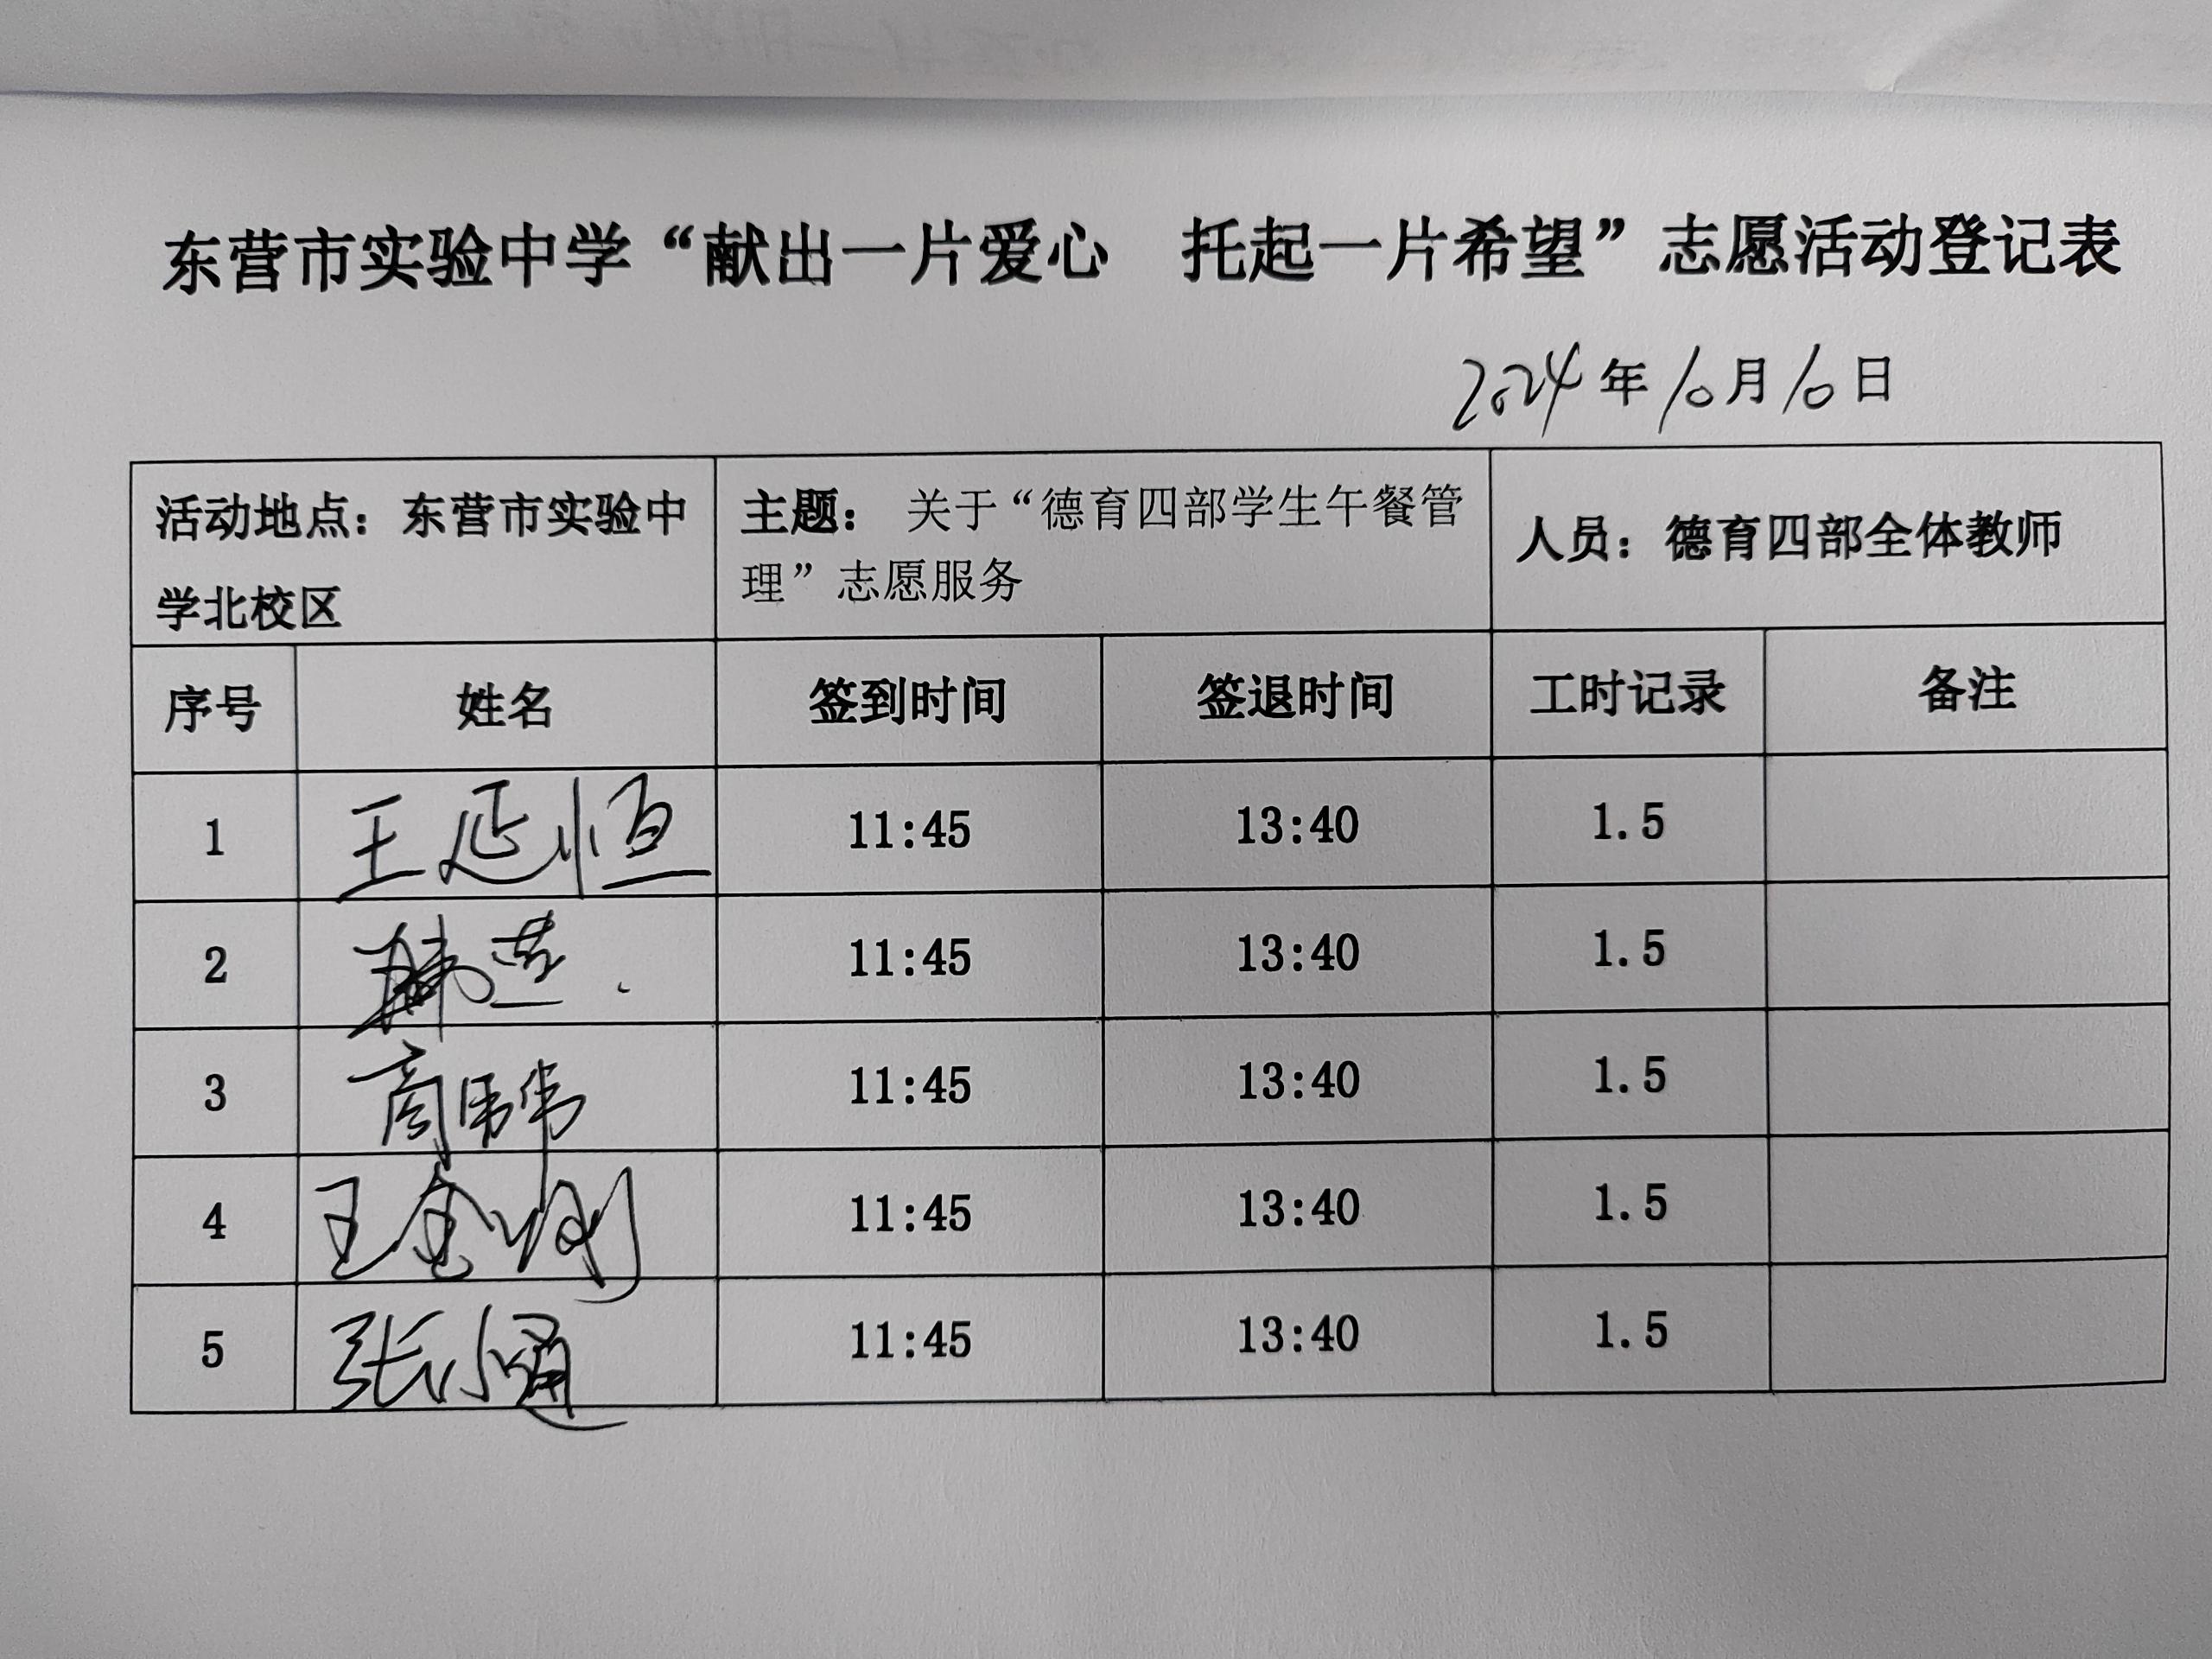 东营市实验中学“献出一片爱心 托起一片希望”志愿活动登记表
2024年10月10日
活动地点：东营市实验中
学北校区
主题： 关于“德育四部学生午餐管
理”志愿服务
人员：德育四部全体教师
序号 姓名 签到时间 签退时间 工时记录 备注
1 王延恒 11:45 13:40 1.5
2 11:45 13:40 1.5
3 商 伟 11:45 13:40 1.5
4 王金刚 11:45 13:40 1.5
5 张小通 11:45 13:40 1.5